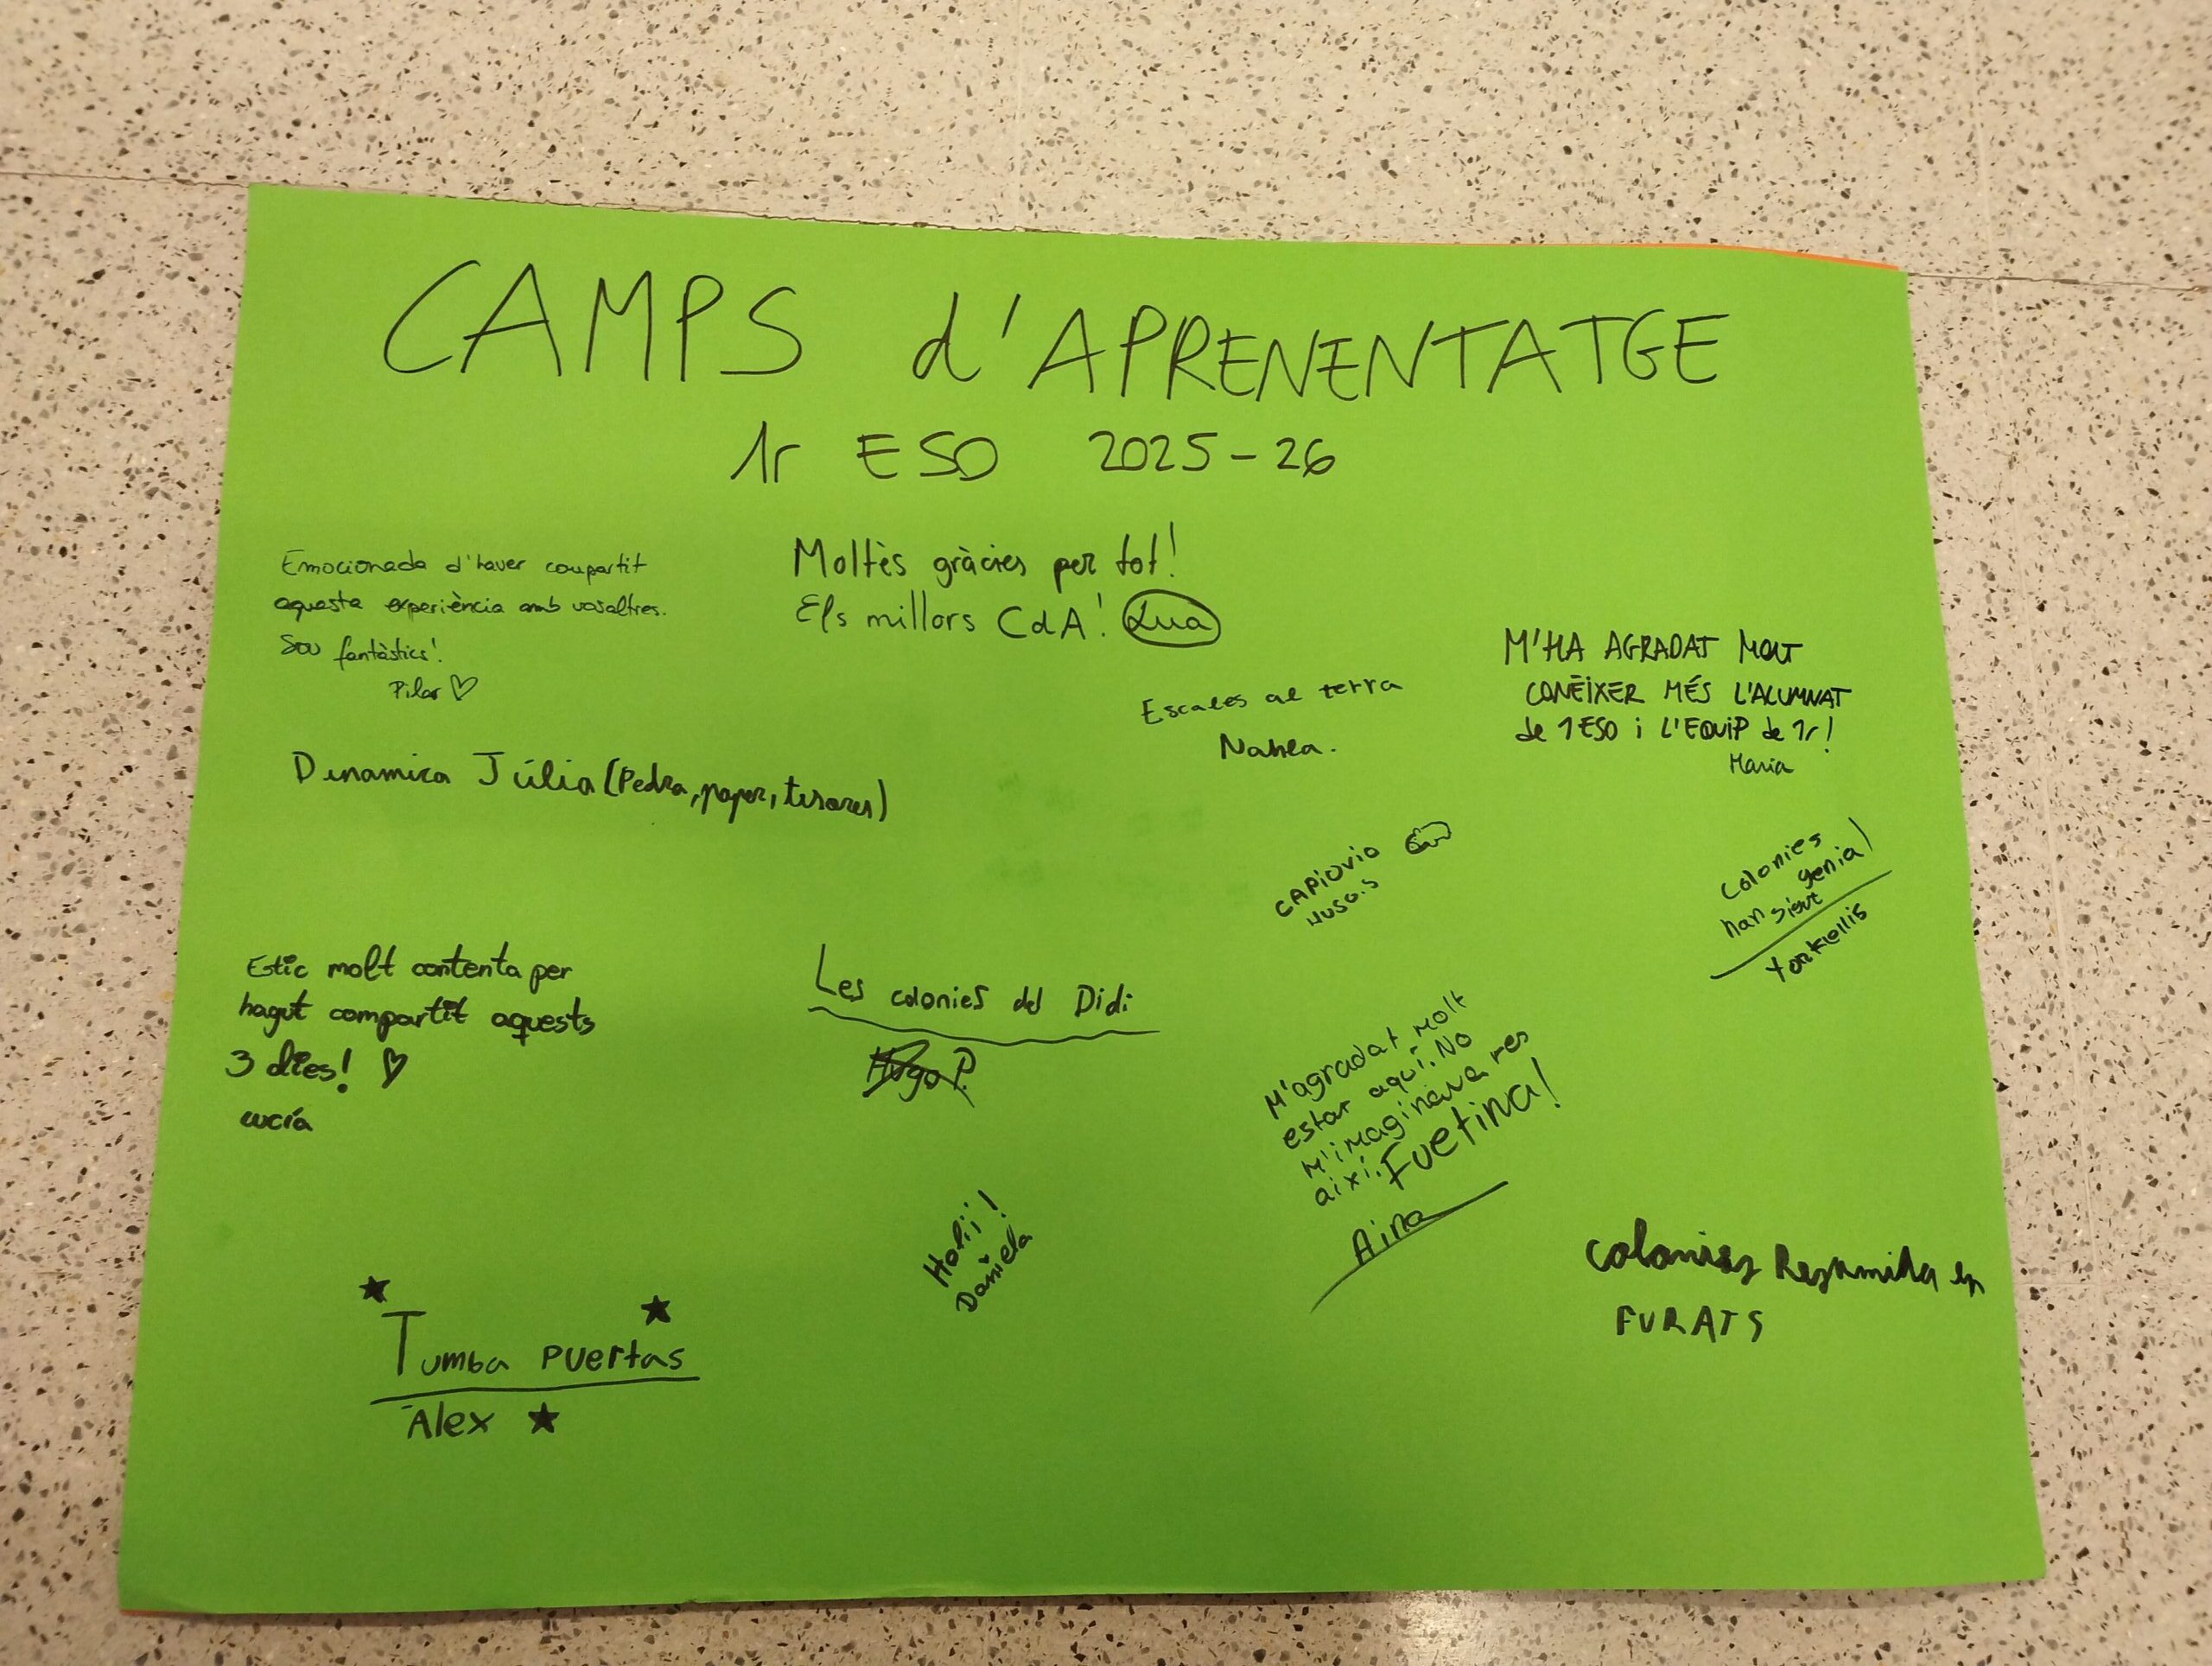 CAMPS d'APRENENTATGE
1r ESO 2025-26
Emocionada d'haver compartit
aquesta experiència amb vosaltres.
Sou fantàstics!
Pilar ♡
Moltès gràcies per tot!
Els millors CdA! Lua
Escales al terra
M'HA AGRADAT MOLT
CONÈIXER MÉS L'ALUMNAT
de 1 ESO i L'EQUIP de 1r!
Maria
Dinamica Júlia (Pedra, paper, tisores)
CAPIOVIO
HUGO.S
Colonies
han sigut genial
Estic molt contenta per
hagut compartit aquests
3 dies! ♡
Lucía
Les colonies del Didi
Hugo P.
M'agradat molt
estar aquí. No
m'imaginava res
així. Fuetina!
Aina
Holii!
Daniela
Colonies Resumida en
FURATS
Tumba puertas
Alex